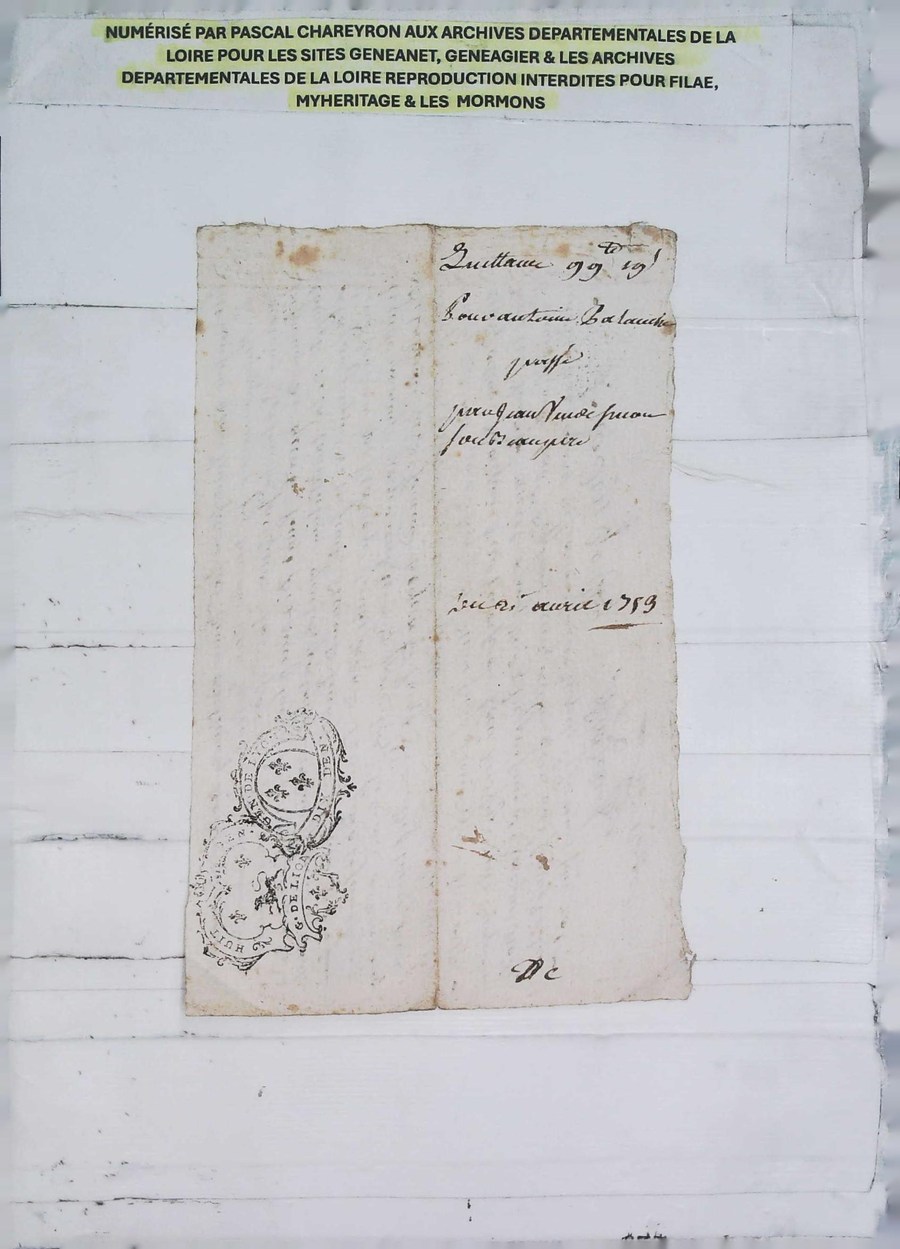 NUMÉRISÉ PAR PASCAL CHAREYRON AUX ARCHIVES DEPARTEMENTALES DE LA
LOIRE POUR LES SITES GENEANET, GENEAGIER & LES ARCHIVES
DEPARTEMENTALES DE LA LOIRE REPRODUCTION INTERDITES POUR FILAE,
MYHERITAGE & LES MORMONS
Quittance 99tt 19s
Pour antoine Palanche
passé
par Jean
son Beaupere
Du avril 1753
GEN DE LYO
DEN
HUIT
G. DE LION